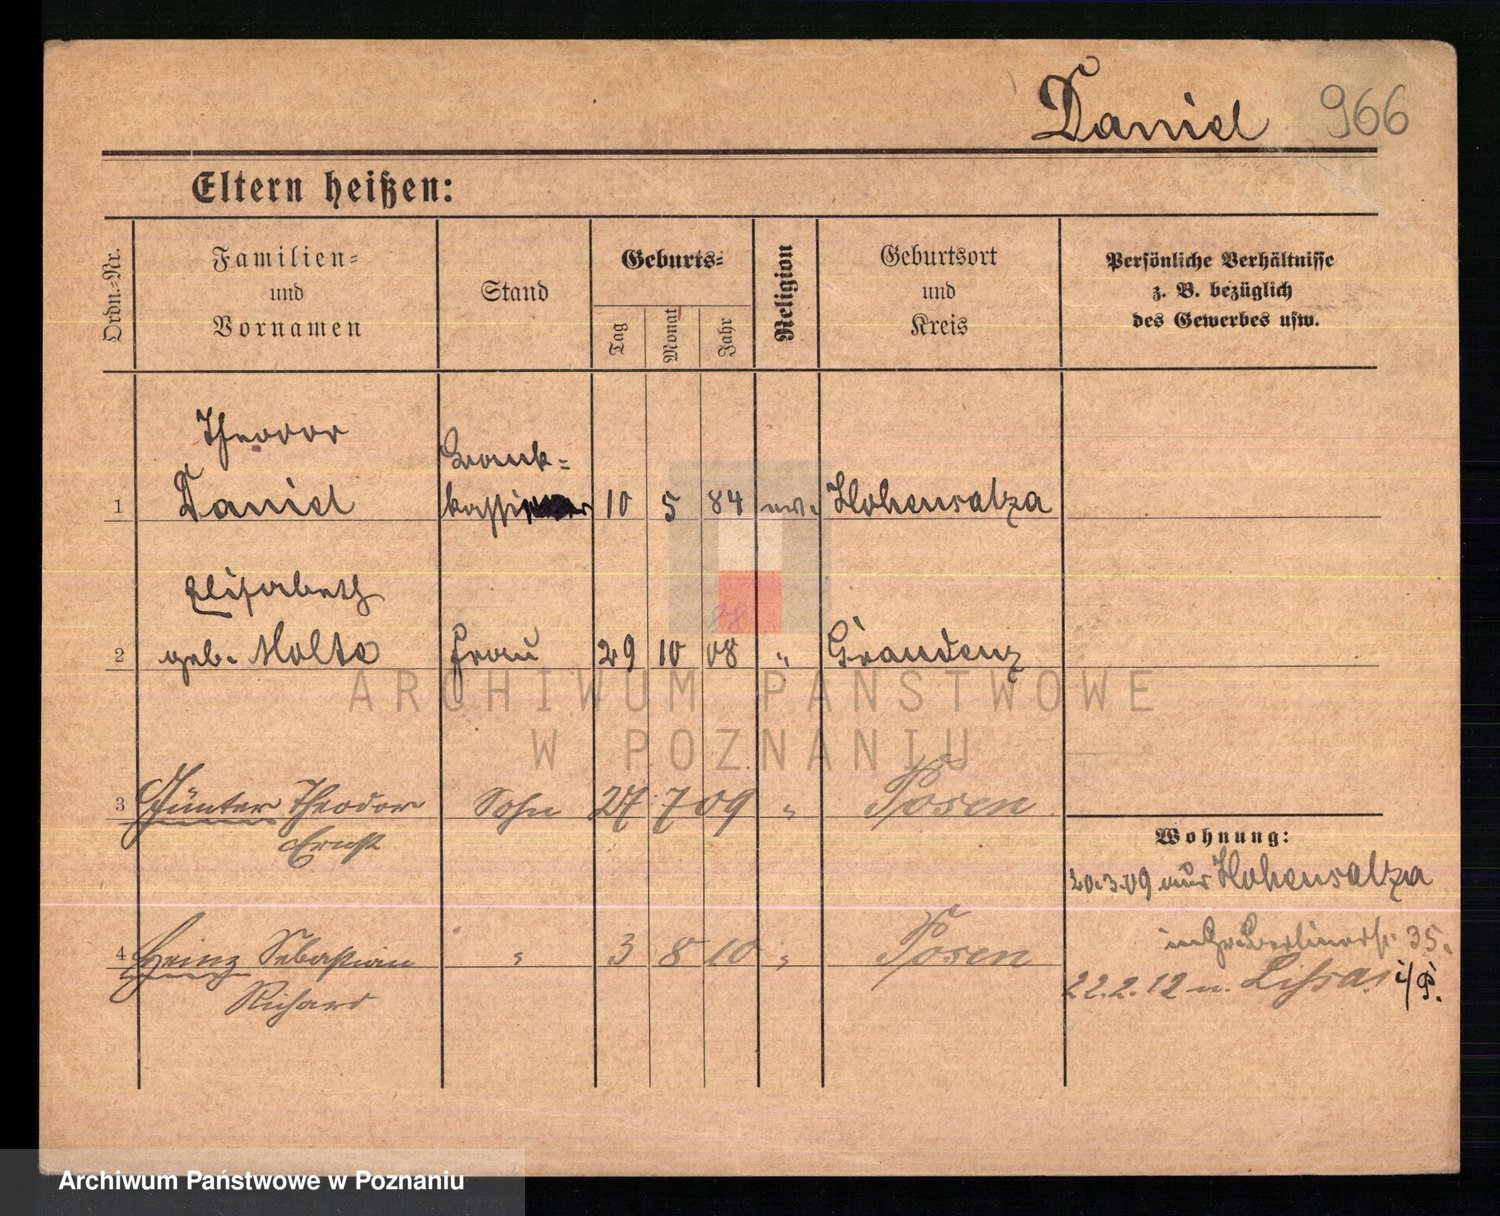 Daniel 966
Eltern heißen:
Ordn.-Nr.
Familien-
und
Vornamen
Stand
Geburts-
Tag
Monat
Jahr
Religion
Geburtsort
und
Kreis
Persönliche Verhältnisse
z. B. bezüglich
des Gewerbes usw.
Theodor
Bank-
1 Daniel 10 5 84 ev. Hohensalza
Elisabeth
08
2 geb. Nolte Frau 29 10 08 " Graudenz
ARCHIWUM PAŃSTWOWE
W POZNANIU
3 Günter Theodor Sohn 27 7 09 " Posen
Ernst
Wohnung:
20.3.09 aus Hohensalza
4 Heinz Sebastian " 3 8 10 " Posen
in Gr. Berlinerstr. 35.
Richard
22.2.12 n. Lissa i/P.
Archiwum Państwowe w Poznaniu